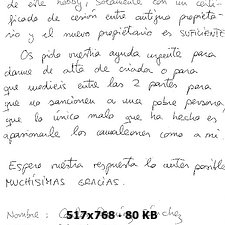 de este hobby, solamente con un certi-
ficado de cesión entre antiguo propieta-
rio y el nuevo propietario es SUFICIENTE
Os pido vuestra ayuda urgente para
darme de alta de criador o para
que medieis entre las 2 partes para
que no sancionen a una pobre persona
que lo único malo que ha hecho es
apasionarle los camaleones como a mi.
Espero vuestra respuesta lo antes posible
MUCHÍSIMAS GRACIAS.
Nombre :
517x768 - 80 KB